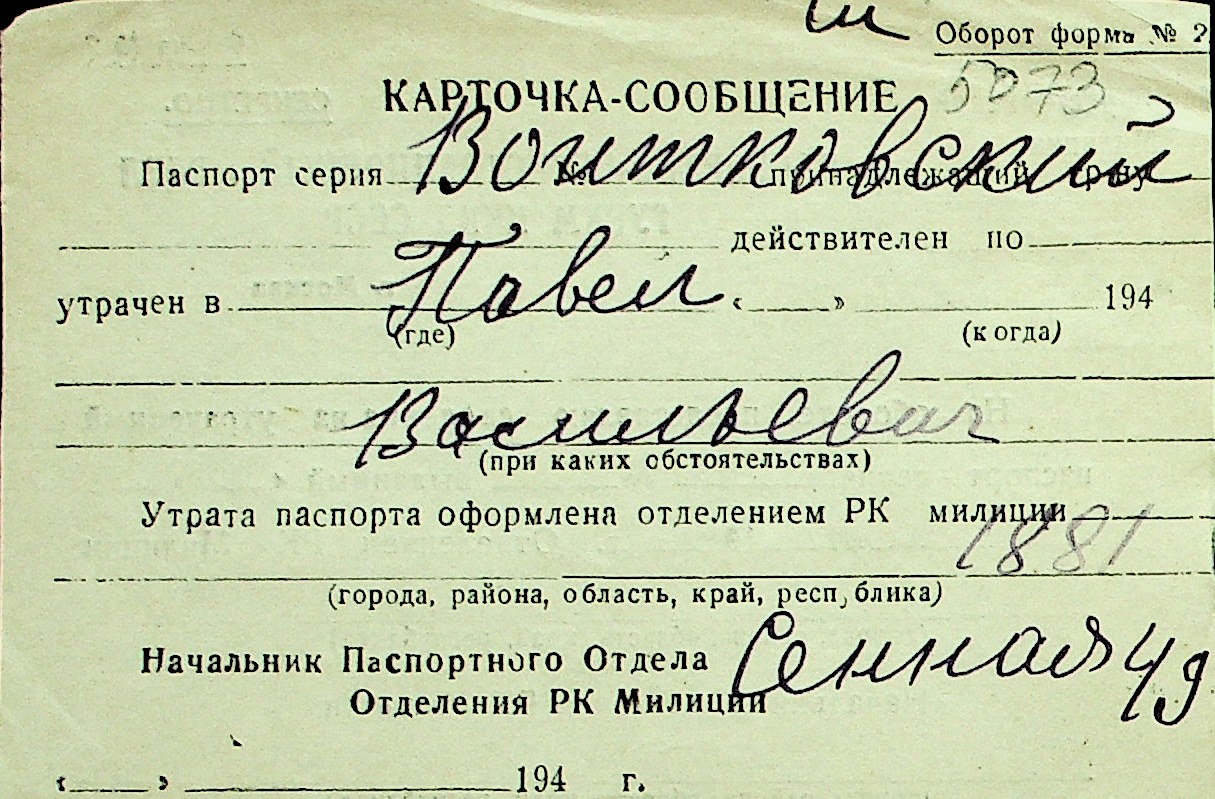 Оборот форма № 2
КАРТОЧКА-СООБЩЕНИЕ 5073
Паспорт серия № принадлежащий гр-ну
Воитковский
действителен по
Павел
утрачен в « » 194
(где) (когда)
Васильевич
(при каких обстоятельствах)
Утрата паспорта оформлена отделением РК милиции
1881
(города, района, область, край, республика)
Начальник Паспортного Отдела
Сенная 49
Отделения РК Милиции
« » 194 г.